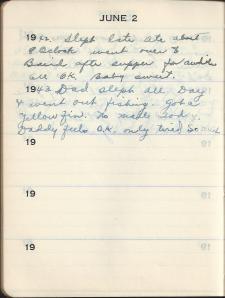 JUNE 2
19 42. Slept late ate about
8 O'clock went over to
Baird after supper for awhile
all OK. Baby sweet.
1943 Dad slept all Day
& went out fishing. Got a
yellow fin. No mail today.
Daddy feels O.K. only tired So much
19
19
19